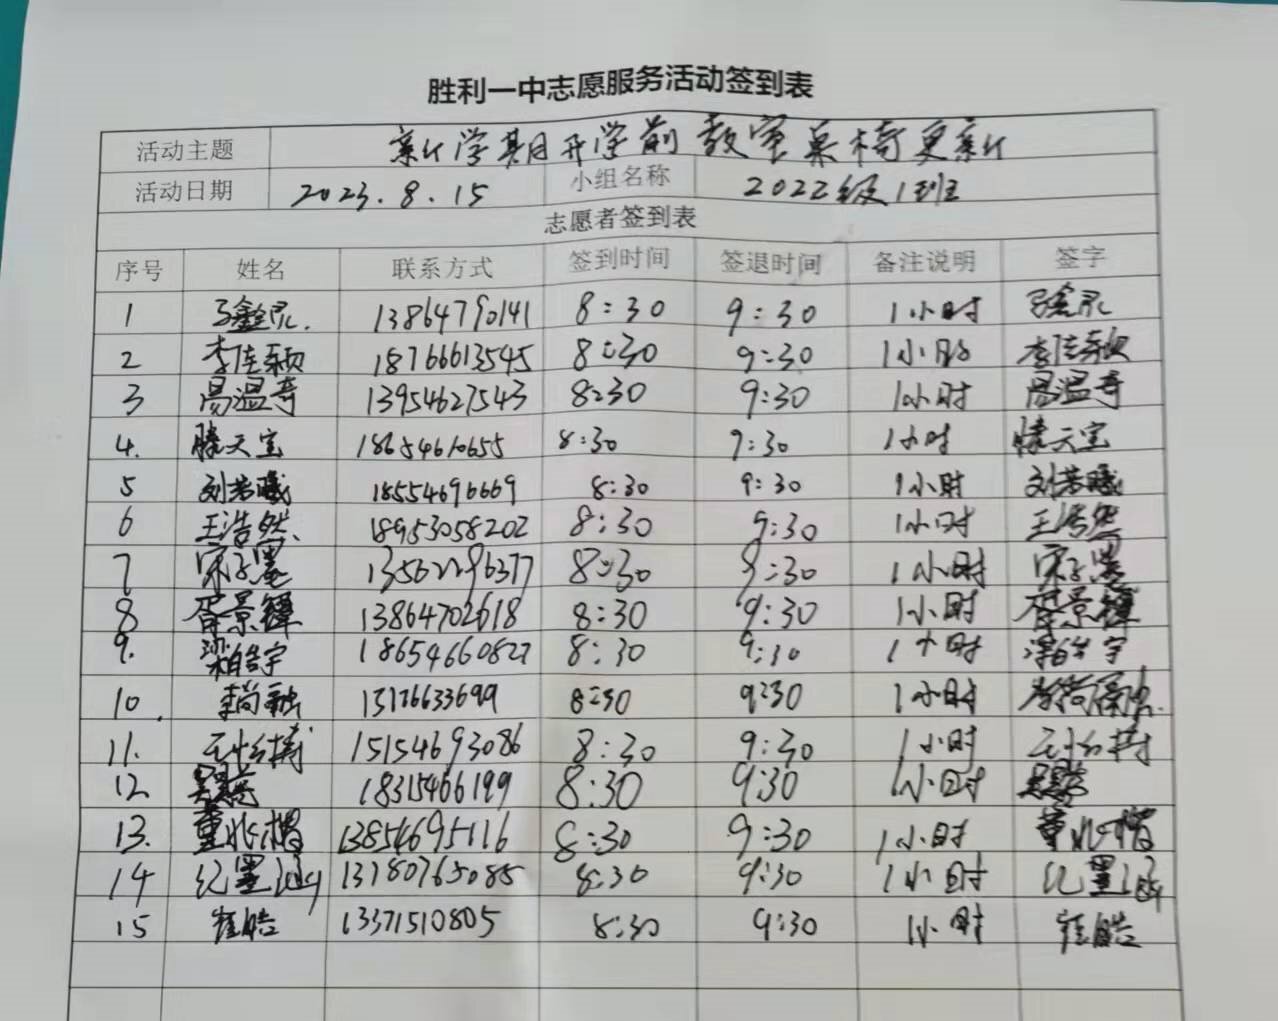 胜利一中志愿服务活动签到表
活动主题 新学期开学前教室桌椅更新
活动日期 2023.8.15 小组名称 2022级1班
志愿者签到表
序号 姓名 联系方式 签到时间 签退时间 备注说明 签字
1 13864790141 8:30 9:30 1小时
2 李佳颖 18766613545 8:30 9:30 1小时 李佳颖
3 温奇 13954627543 8:30 9:30 1小时 温奇
4. 滕天宝 18654610655 8:30 9:30 1小时 滕天宝
5 刘芳曦 18554696669 8:30 9:30 1小时 刘芳曦
6 王浩然 18953058202 8:30 9:30 1小时 王浩然
7 宋子墨 13562296377 8:30 9:30 1小时 宋子墨
8 胥景铎 13864702618 8:30 9:30 1小时 胥景铎
9. 梁皓宇 18654660827 8:30 9:30 1小时 梁皓宇
10. 李尚融 13126633699 8:30 9:30 1小时 李尚融
11. 15154693086 8:30 9:30 1小时
12 18315466199 8:30 9:30 1小时
13. 董兆楷 13854695116 8:30 9:30 1小时 董兆楷
14 纪墨涵 13780765085 8:30 9:30 1小时 纪墨涵
15 崔皓 13371510805 8:30 9:30 1小时 崔皓